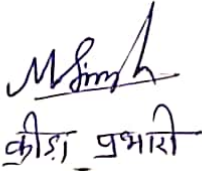 M Singh
क्रीड़ा प्रभारी